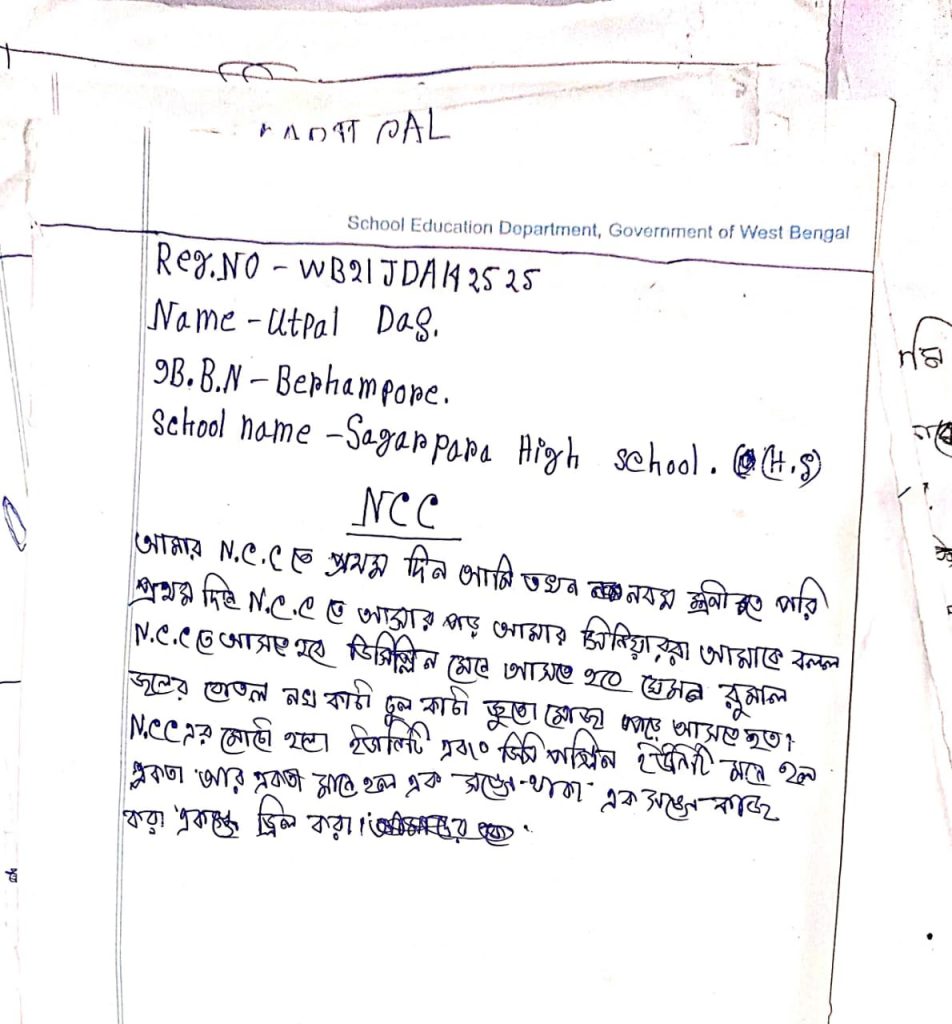 PAL
School Education Department, Government of West Bengal
Reg.NO - WB21JDA142525
Name - Utpal Das.
9B.B.N - Berhampore.
School name - Sagarpara High school. (H.S)
NCC
আমার N.C.C তে প্রথম দিন আমি তখন নবম শ্রনীতে পরি
প্রথম দিনে N.C.C তে আসার পড় আমার সিনিয়াররা আমাকে বলল
N.C.C তে আসতে হবে ডিসিপ্লিন মেনে আসতে হবে যেমন রুমাল
জলের বোতল নখ কাটা চুল কাটা জুতো মোজা পড়ে আসতে হত।
NCC এর মোটো হলো ইউনিটি এবং ডিসিপ্লিন ইউনিটি মানে হল
একতা আর একতা মানে হল এক সঙ্গে থাকা এক সঙ্গে কাজ
করা একসঙ্গে ড্রিল করা।